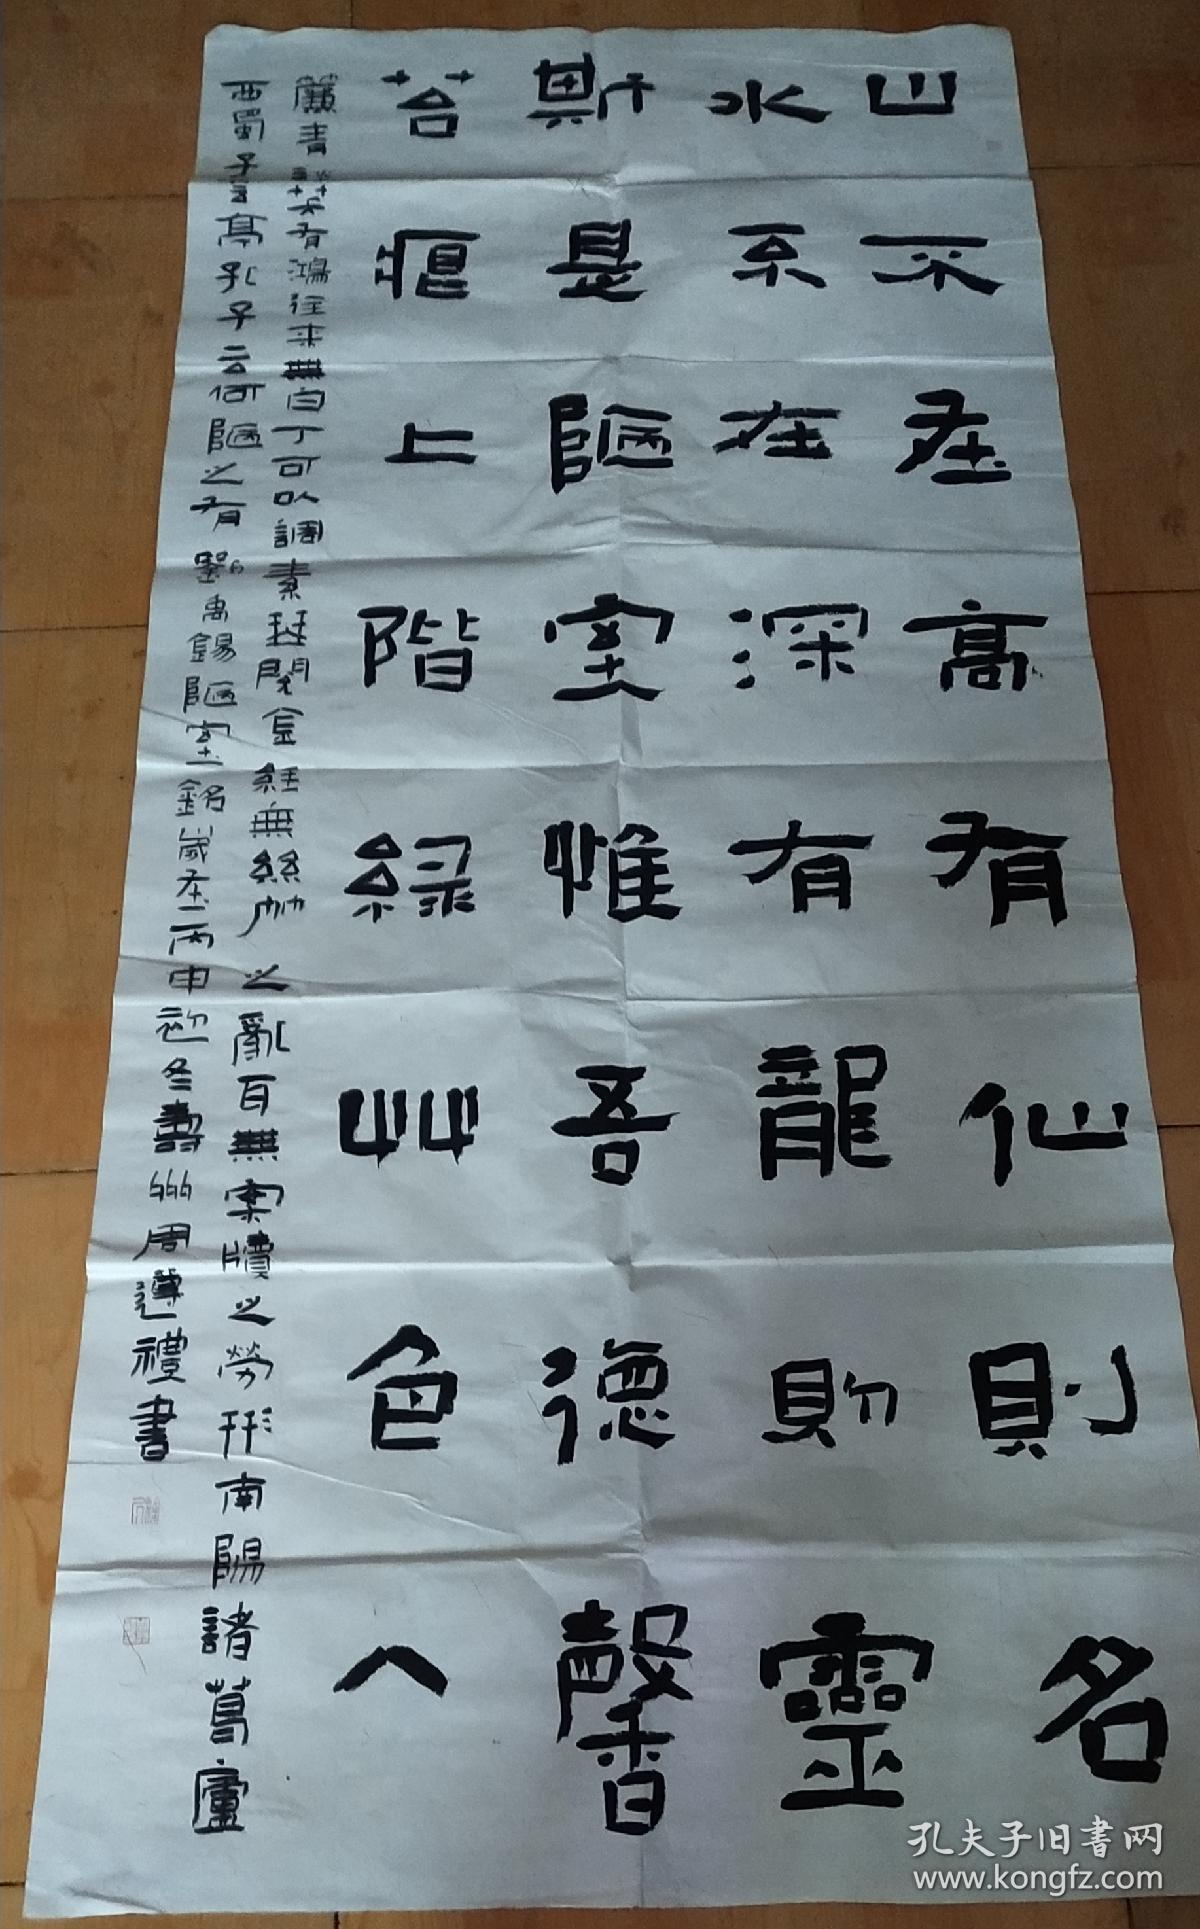 山不在高有仙則名
水不在深有龍則靈
斯是陋室惟吾德馨
苔痕上階綠艸色入
簾青笑有鴻往來無白丁可以調素琴閱金經無絲竹之亂耳無案牘之勞形南陽諸葛廬
西蜀子云亭孔子云何陋之有劉禹錫陋室銘歲在丙申初冬壽州周遵禮書
孔夫子旧书网
www.kongfz.com